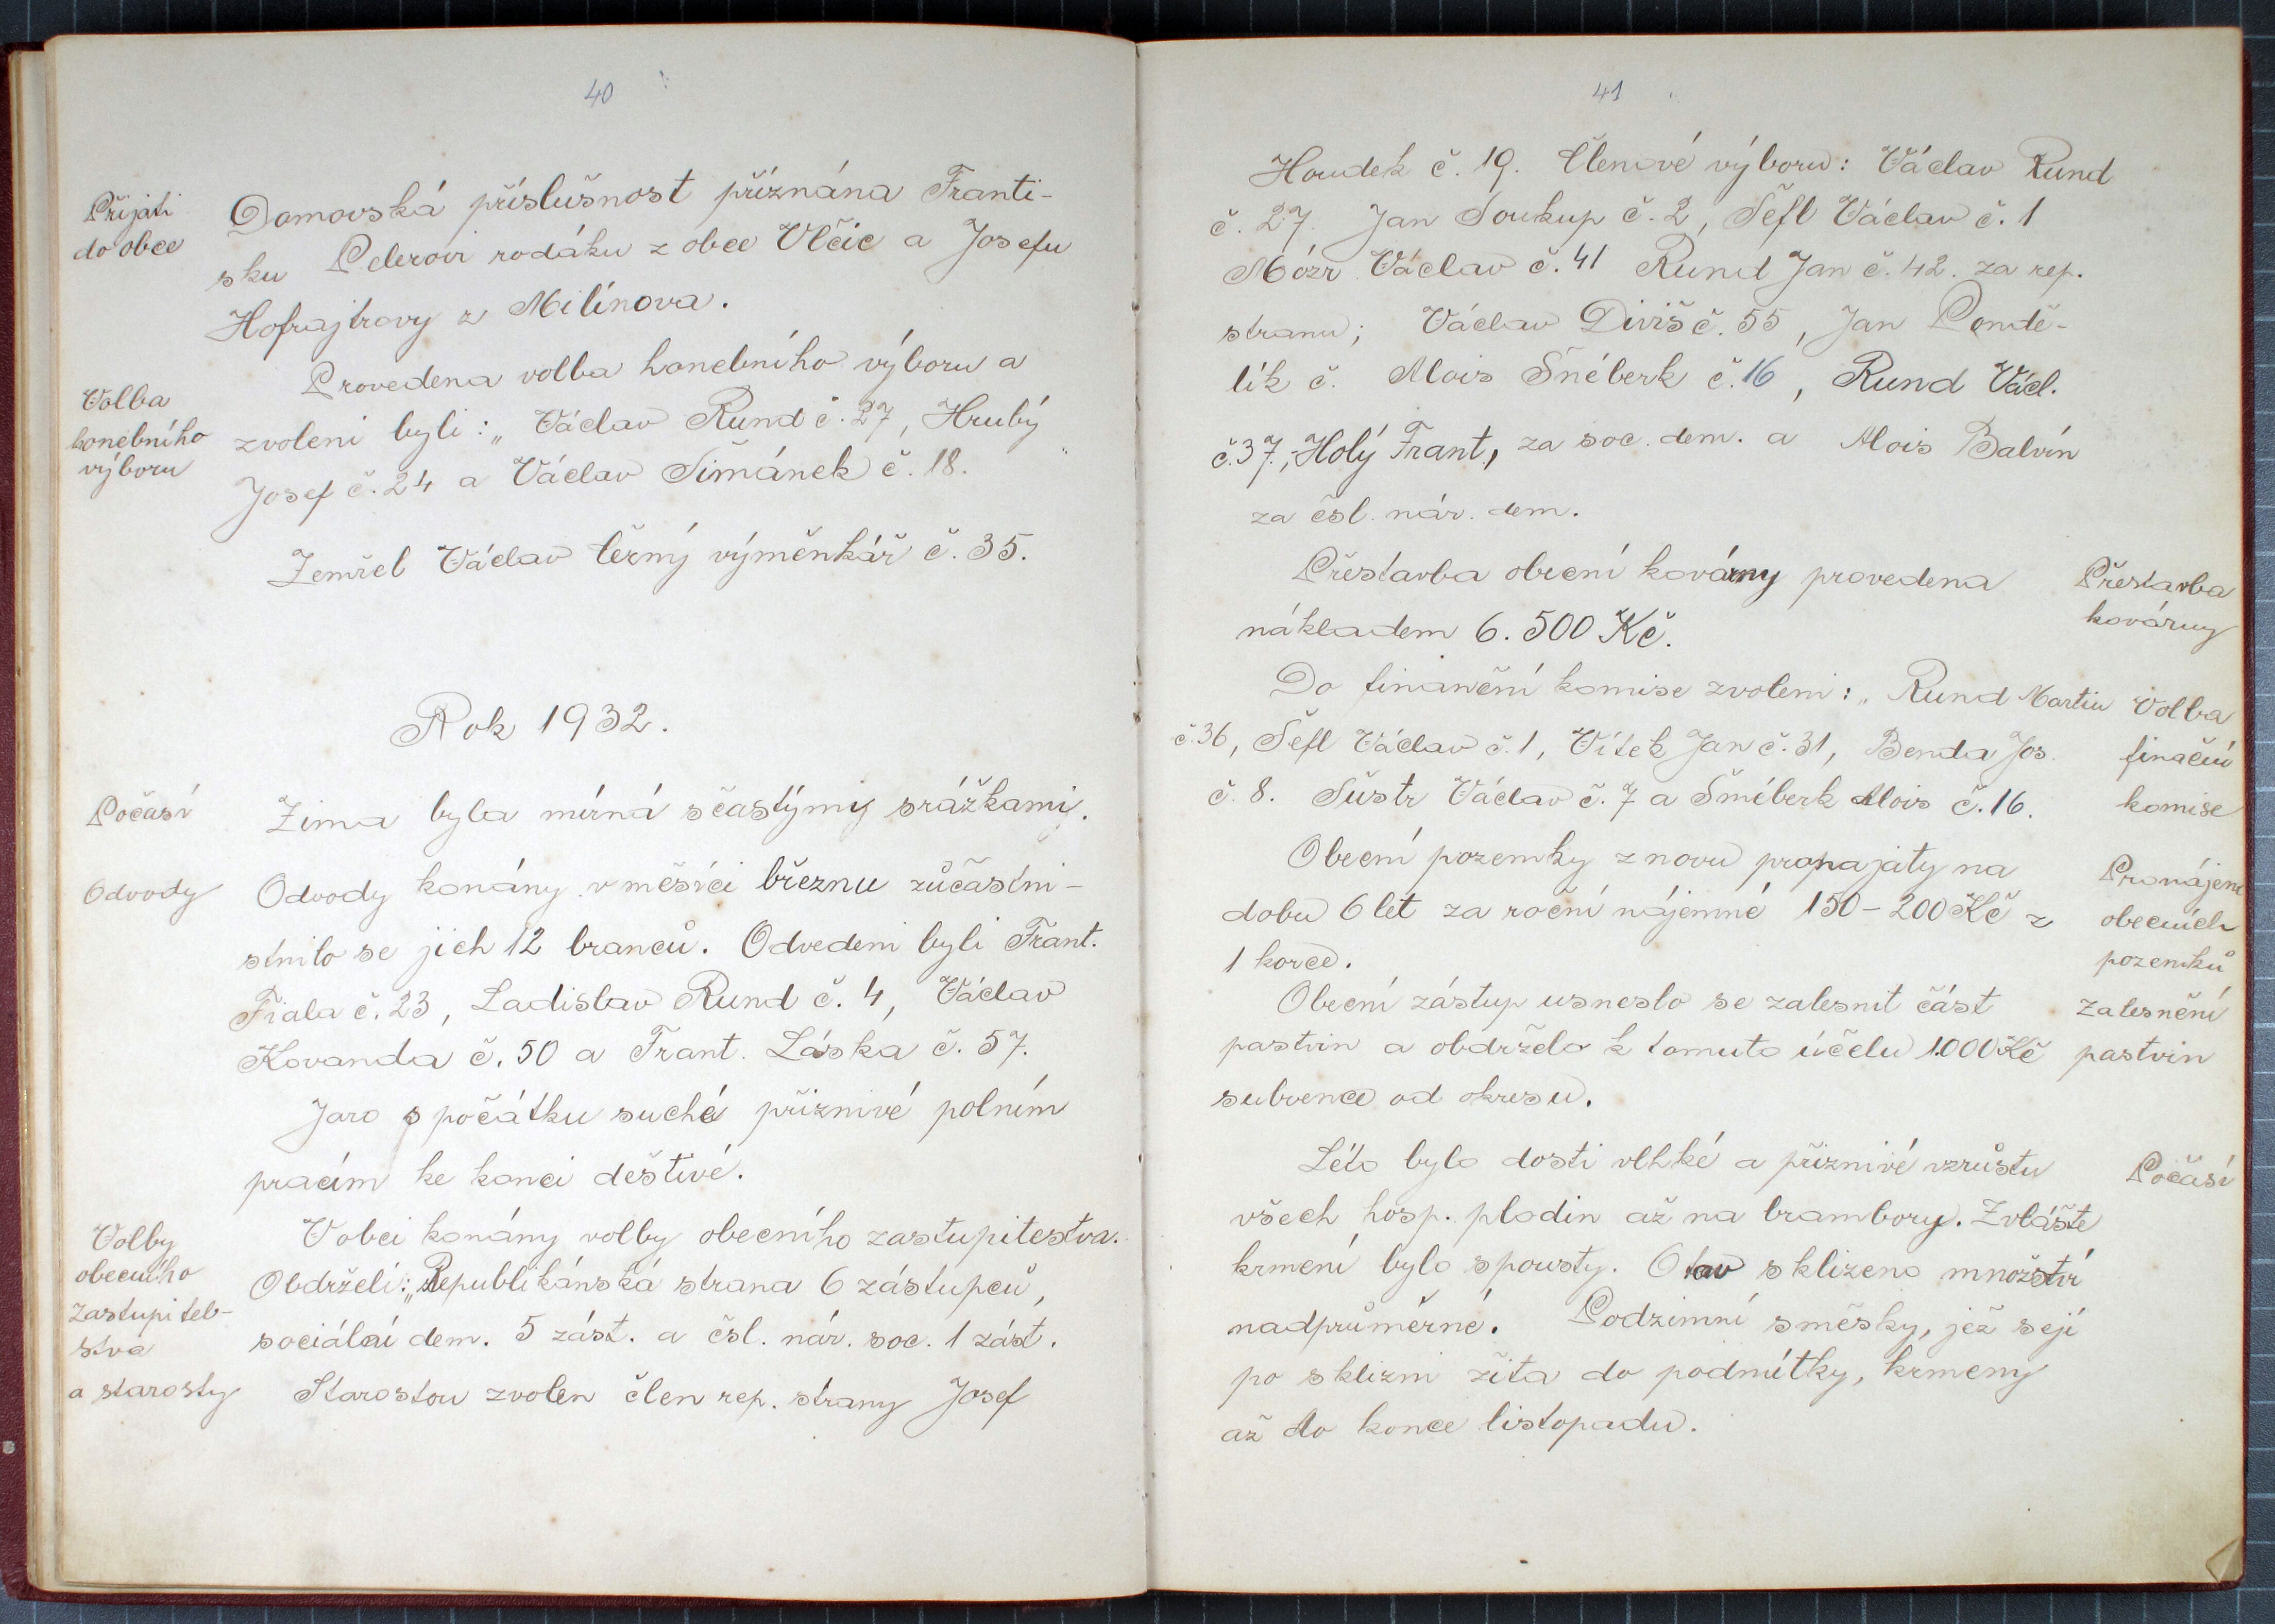 40
Přijati
do obce
Domovská příslušnost přiznána Franti-
sku Pelerovi rodáku z obce Vlčic a Josefu
Hofrajtrovy z Milínova.
Volba
honebního
výboru
Provedena volba honebního výboru a
zvoleni byli: „Václav Rund č. 27, Hrubý
Josef č. 24 a Václav Šimánek č. 18."
Zemřel Václav Černý výměnkář č. 35.
Rok 1932.
Počasí
Zima byla mírná sčastýmy srážkami.
Odvody
Odvody konány v měsíci březnu zůčastni-
stnilo se jich 12 branců. Odvedeni byli Frant.
Fiala č. 23, Ladislav Rund č. 4, Václav
Kovanda č. 50 a Frant. Láska č. 57.
Jaro s počátku suché příznivé polním
pracím ke konci deštivé.
Volby
obecního
zastupitel-
stva
a starosty
V obci konány volby obecního zastupitestva.
Obdrželi: „Republikánská strana 6 zástupců,
sociální dem. 5 zást. a čsl. nár. soc. 1 zást.
Starostou zvolen člen rep. strany Josef
41
Houdek č. 19. Členové výboru: Václav Rund
č. 27. Jan Soukup č. 2, Šefl Václav č. 1
Mózr Václav č. 41 Rund Jan č. 42. za rep.
stranu; Václav Diviš č. 55, Jan Pondě-
lík č. Alois Šnéberk č. 16, Rund Václ.
č. 37., Holý Frant, za soc. dem. a Alois Balvín
za čsl. nár. dem.
Přestavba obecní kovárny provedena
nákladem 6.500 Kč.
Přestavba
kovárny
Do finanční komise zvoleni: „Rund Martin
č. 36, Šefl Václav č. 1, Vítek Jan č. 31, Benda Jos.
č. 8. Šustr Václav č. 7 a Šmíberk Alois č. 16.
Volba
finační
komise
Obecní pozemky znovu propajaty na
dobu 6 let za roční nájemné 150-200 Kč z
1 korce.
Pronájem
obecních
pozemků
Obecní zástup usneslo se zalesnit část
pastvin a obdrželo k tomuto účelu 1.000 Kč
subvence od okresu.
Zalesnění
pastvin
Léto bylo dosti vlhké a příznivé vzrůstu
všech hosp. plodin až na brambory. Zvláště
krmení bylo spousty. Otav sklizeno množství
nadprůměrné. Podzimní směsky, jež sejí
po sklizni žita do podmítky, krmeny
až do konce listopadu.
Počasí